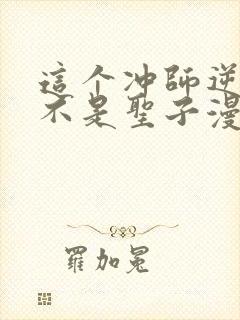 這个冲師逆
不是聖子漫
羅加冕